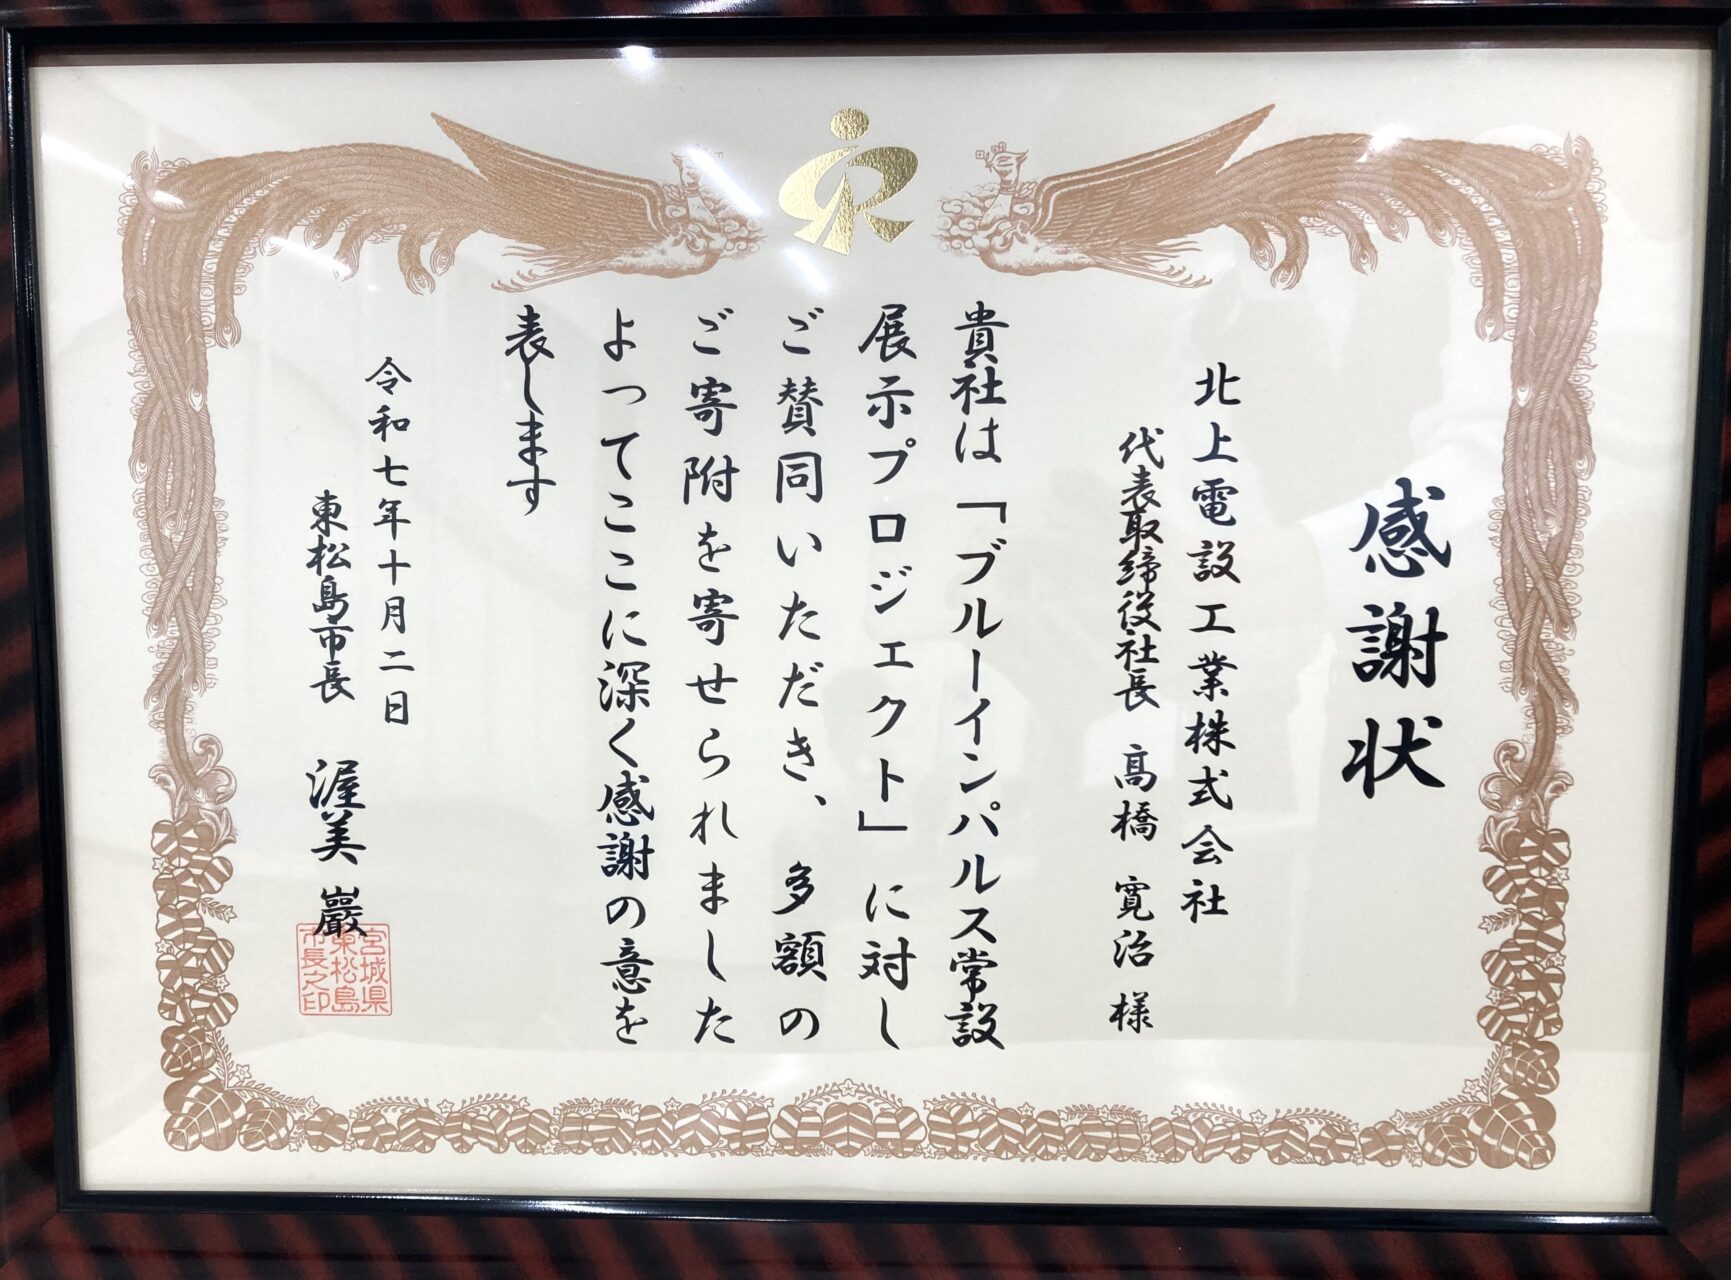 感謝状
北上電設工業株式会社
代表取締役社長 髙橋 寛治 様
貴社は「ブルーインパルス常設
展示プロジェクト」に対し
ご賛同いただき、多額の
ご寄附を寄せられました
よってここに深く感謝の意を
表します
令和七年十月二日
東松島市長 渥美 巖
宮城県
東松島
市長之印